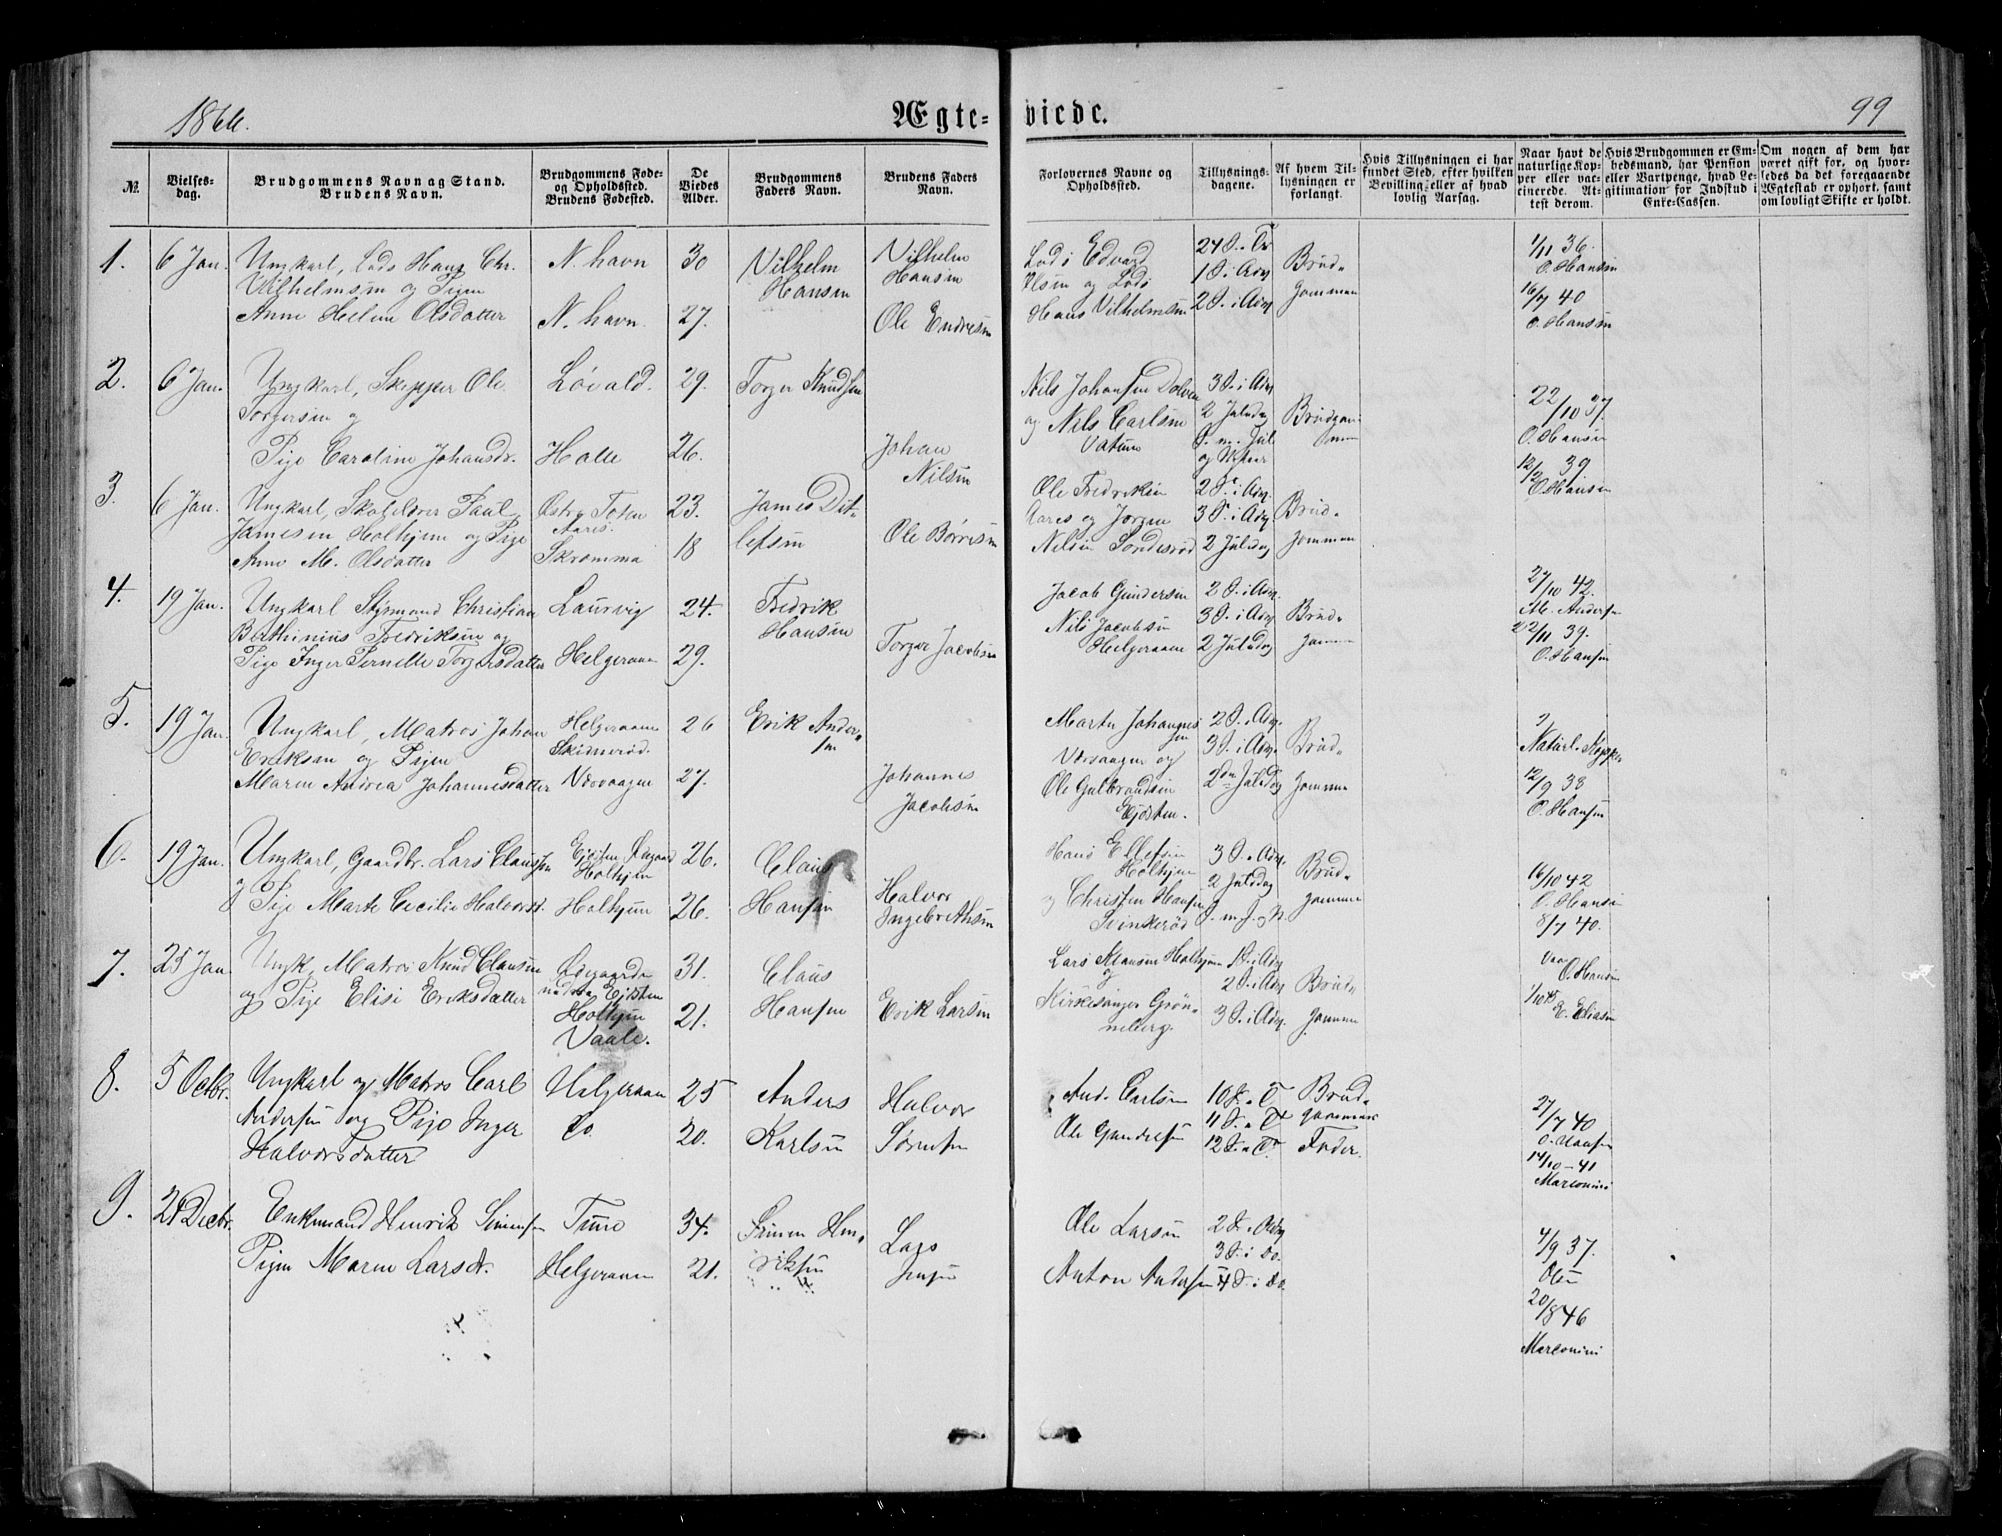 1866.
Ægte-
viede.
99
№.
Vielses-
dag.
Brudgommens Navn og Stand.
Brudens Navn.
Brudgommens Føde-
og Opholdssted.
Brudens Fødested.
De
Viedes
Alder.
Brudgommens
Faders Navn.
Brudens Faders
Navn.
Forlovernes Navne og
Opholdssted.
Tillysnings-
dagene.
Af hvem Til-
lysningen er
forlangt.
Hvis Tillysningen ei har
fundet Sted, efter hvilken
Bevilling eller af hvad
lovlig Aarsag.
Naar havt de
naturlige Kop-
per eller vac-
cinerede. At-
test derom.
Hvis Brudgommen er Em-
bedsmand, har Pension
eller Vartpenge, hvad Le-
gitimation for Indskud i
Enke-Cassen.
Om nogen af dem har
været gift for, og hvor-
ledes da det foregaaende
Ægteskab er ophørt, samt
om lovligt Skifte er holdt.
1.
6 Jan.
Ungkarl, Lods Hans Chr.
Vilhelmsen og Pigen
Anne Helene Olsdatter
N. havn
N. havn.
30
27.
Vilhelm
Hansen
Vilhelm
Hansen
Ole Endresen
Lods Edvard
Olsen og Lods
Hans Vilhelmsen
24 S. e. Tr
1 S. i Adv
2 S. i Adv
Brud-
gommen
1/11 36.
O. Hansen
16/7 40
O. Hansen
2.
6 Jan.
Ungkarl, Skipper Ole
Torgersen og
Pige Caroline Johansdr.
Løvald.
Holle
29.
26.
Torger Knudsen
Johan
Nilsen
Nils Johansen Dolven
og Nils Carlsen
3 S. i Adv
2 Juledag
S. m. Jul
og Nytaar
Brudgom-
men
22/10 37.
O. Hansen
12/2 39
O. Hansen
3.
6 Jan.
Ungkarl, Skolelærer Paul
Jamesen Holhjem og Pige
Anne M. Olsdatter
Østre Toten
Aares.
Skromma
23.
18
James Dit-
lefsen
Ole Børresen
Ole Fredriksen
Aares og Jørgen
Nilsen Søndersrød
2 S. i Adv.
3 S. i Adv
2 Juledag
Brud-
gommen
4.
19 Jan.
Ungkarl Styrmand Christian
Bethinius Fredriksen og
Pige Inger Pernelle Torgersdatter
Laurvig
Helgeraaen
24.
29.
Fredrik
Hansen
Torger Jacobsen
Jacob Gundersen
Nils Jacobsen
Helgeraaen
2 S. i Adv.
3 S. i Adv.
2 Juledag
Brud-
gommen
27/10 42.
M. Andersen
22/11 39.
O. Hansen
5.
19 Jan.
Ungkarl, Matros Johan
Eriksen og Pigen
Maren Andrea Johannesdatter
Helgeraaen
Skisnerød.
Værvaagen
26
27.
Erik Ander-
sen
Johannes
Jacobsen
Martin Johannes
sen
Værvaagen og
Ole Gulbrandsen
Ejesten.
2 S. i Adv.
3 S. i Adv.
2den Juledag
Brud-
gommen
?
Naturl. Kopper
12/9 38
O. Hansen
6.
19 Jan.
Ungkarl, Gaardbr. Lars Claussen
og Pige Marte Cecilie Halvorsd.
Ejesten Ødegaard
Holhjem
Holhjem
26.
26.
Claus
Hansen
Halvor
Ingebrethsen
Hans Ellefsen
Holhjem
og Christen Hansen
Svinkerød
3 S. i Adv.
2 Juledag
S. m. J. og N.
Brud-
gommen
16/10 42
O. Hansen
8/7 40.
7.
25 Jan
Ungk. Matros Knud Clausen
og Pige Elise Eriksdatter
Ødegaarden
under Ejesten
Holhjem
Vaale.
31.
21.
Claus
Hansen
Erik Larsen
Lars Klausen Holhjem
og
Kirkesanger Grøn-
neberg.
1 S. i Adv
2 S. i Adv
3 S. i Adv.
Brud-
gommen
O. Hansen
1/10 45
E. Eliasen
8.
5 Octbr.
Ungkarl og Matros Carl
Andersen og Pige Inger
Halvorsdatter
Helgeraaen
Do.
25
20.
Anders
Karlsen
Halvor
Sørensen
And. Carlsen
Ole Gundersen
10 S. e. T
11 S. e. Tr
12 S. e. Tr.
Brud-
gommens
Fader.
27/7 40
O. Hansen
14/10 - 41
Marconini
9.
21 Decbr.
Enkemand Henrik Simensen
Pigen Maren Larsdr.
Tune
Helgeraaen
34.
21.
Simen Hen-
riksen
Lars
Jensen
Ole Larsen
Anton Andersen
2 S. i Adv
3 S. i Do.
4 S. i Do.
4/9 37.
Olsen
20/8 46
Marconini